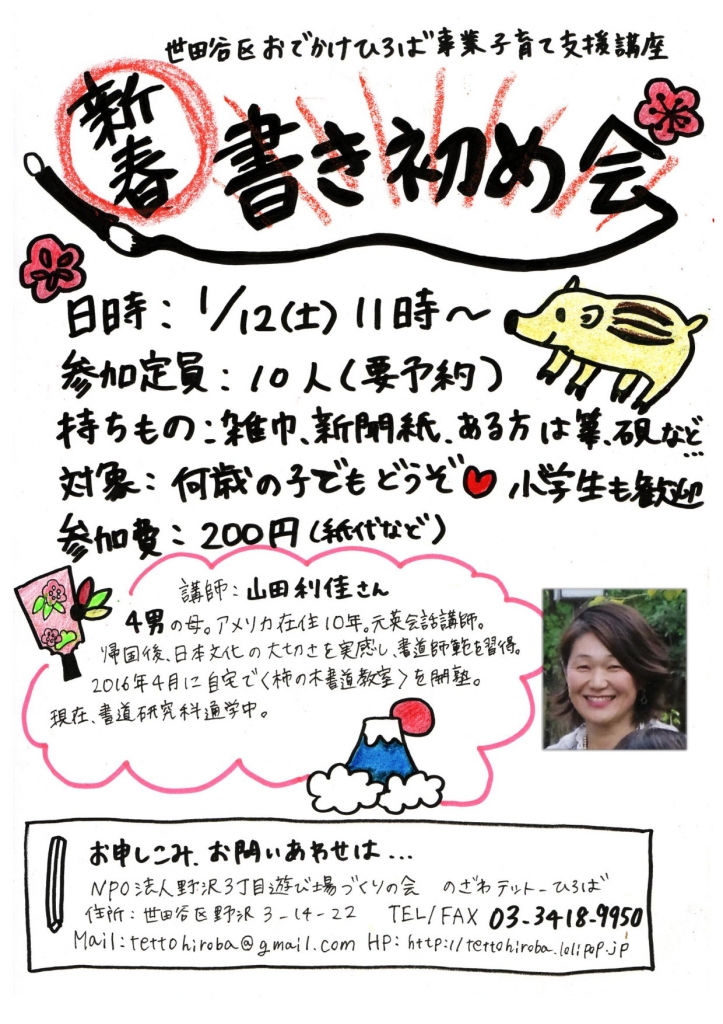 世田谷区おでかけひろば事業子育て支援講座
新春
書き初め会
日時：1/12(土) 11時～
参加定員：10人(要予約)
持ちもの：雑巾、新聞紙、ある方は筆、硯など…
対象：何歳の子でもどうぞ♥小学生も歓迎
参加費：200円(紙代など)
講師：山田利佳さん
4男の母。アメリカ在住10年。元英会話講師。
帰国後、日本文化の大切さを実感し、書道師範を習得。
2016年4月に自宅で〈柿の木書道教室〉を開塾。
現在、書道研究科通学中。
お申しこみ、お問いあわせは…
NPO法人野沢3丁目遊び場づくりの会 のざわテットーひろば
住所：世田谷区野沢3-14-22 TEL/FAX 03-3418-9950
Mail:tettohiroba@gmail.com HP:http://tettohiroba.lolipop.jp